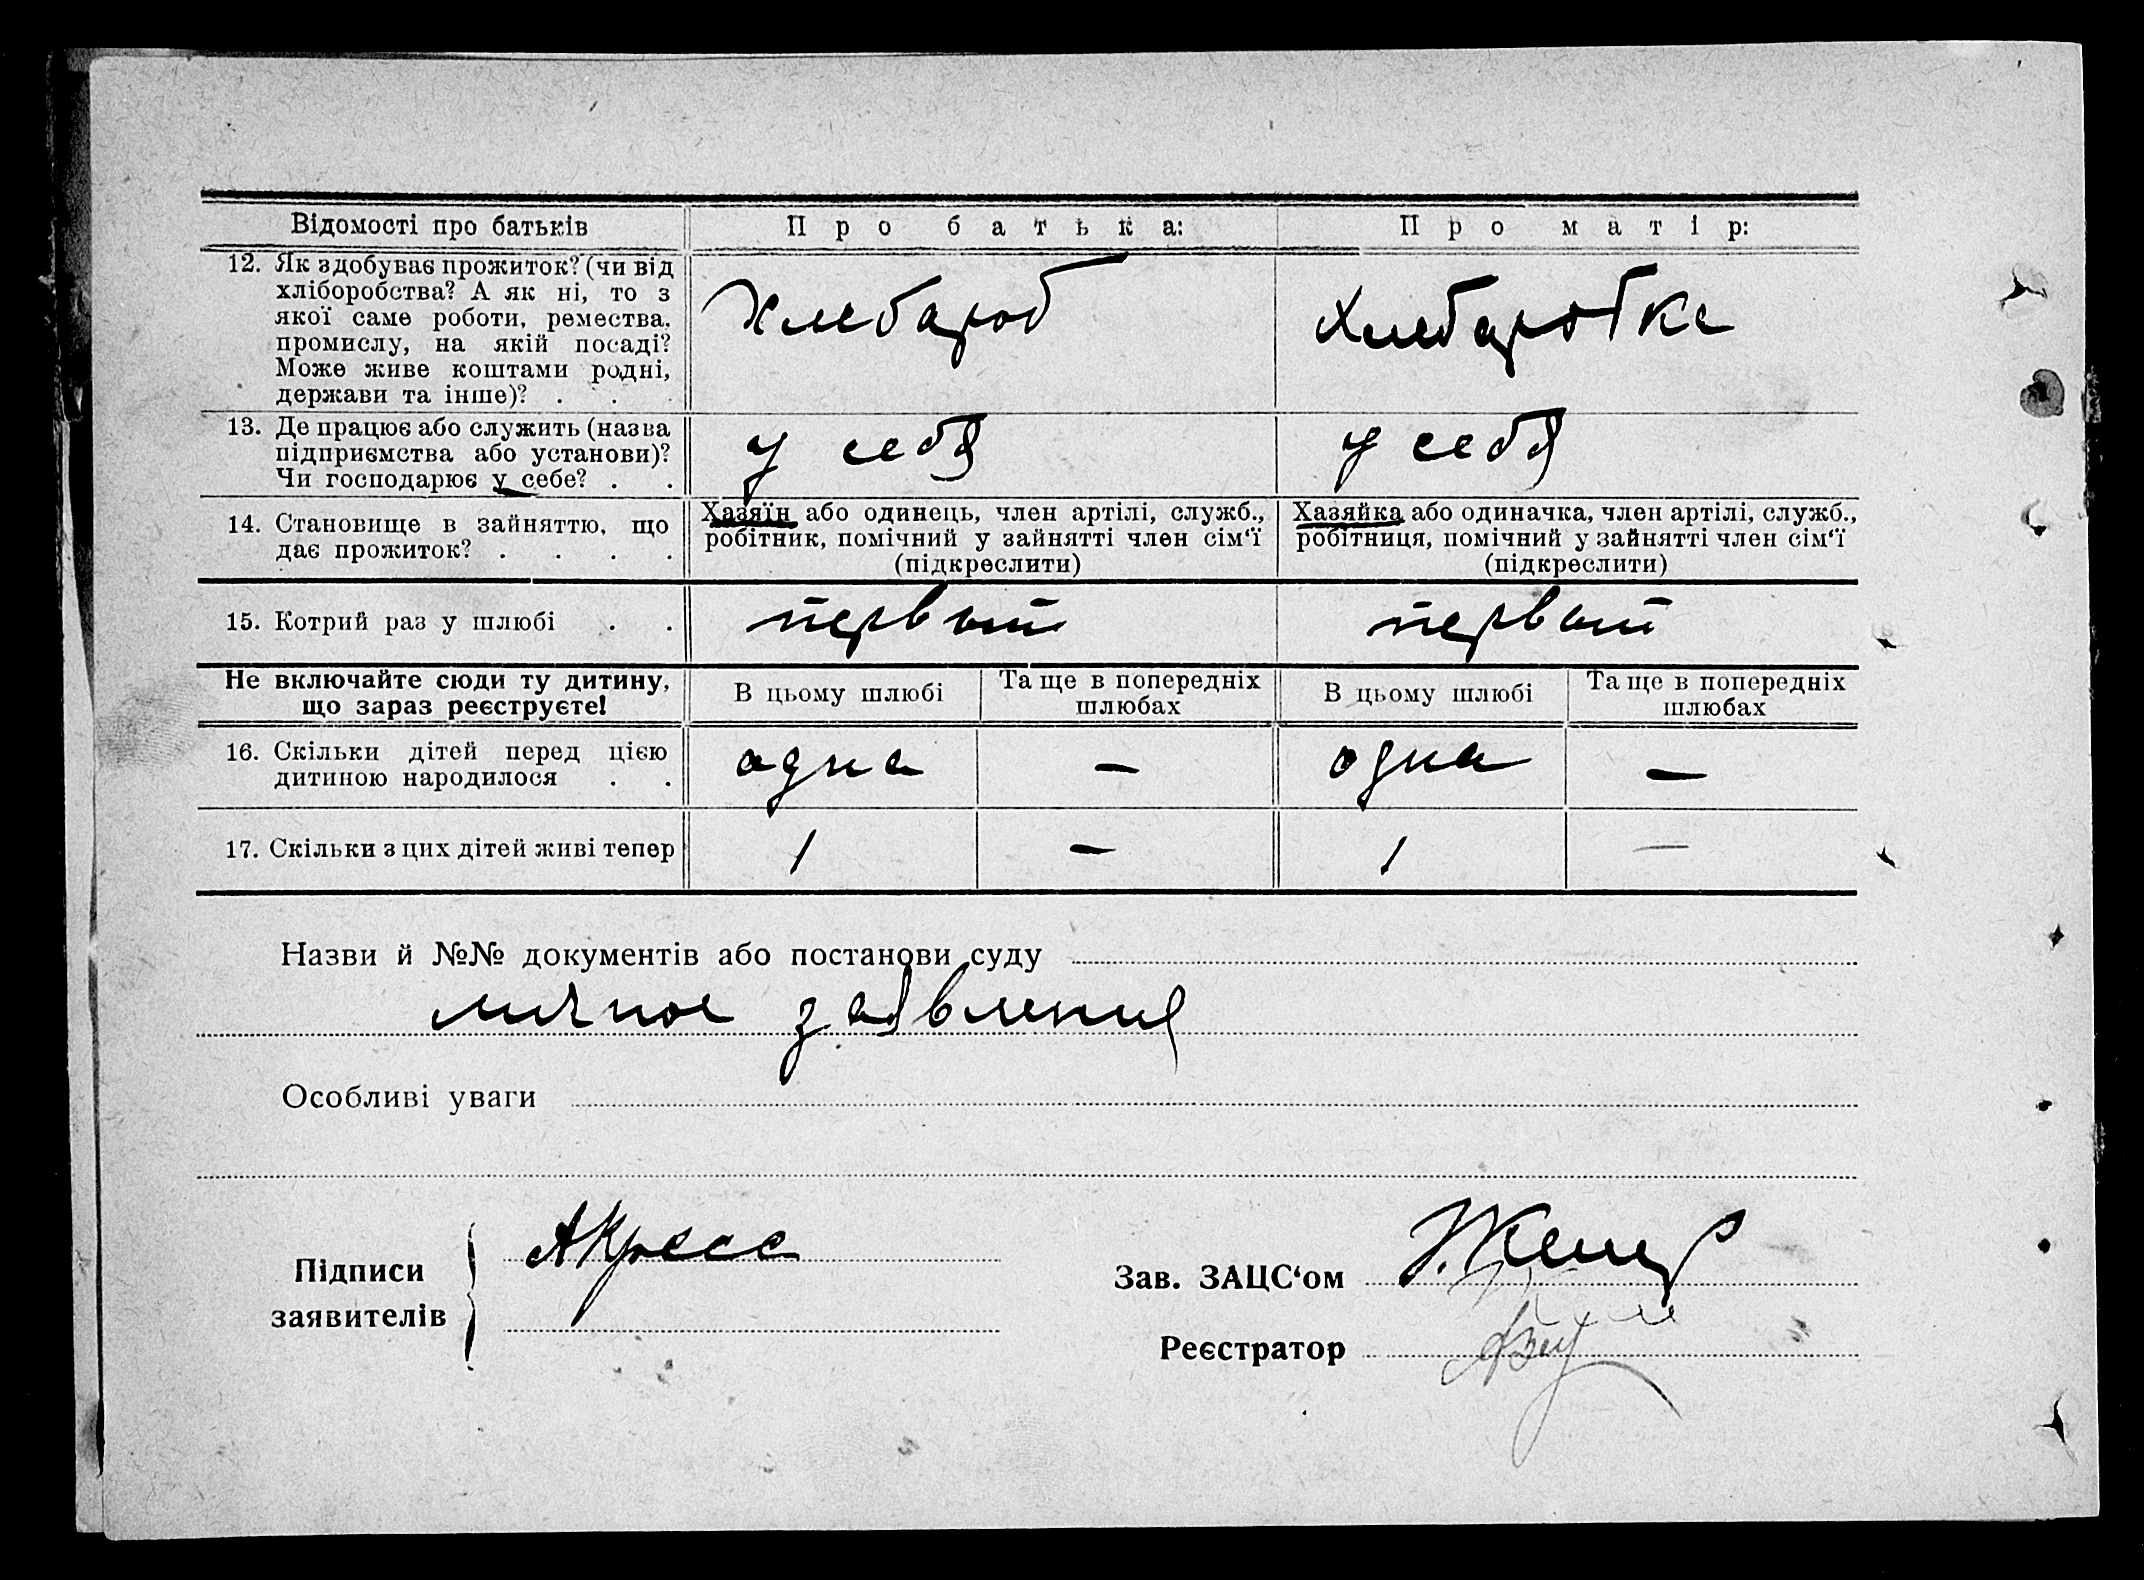 Відомості про батьків
Про батька:
Про матір:
12. Як здобуває прожиток? (чи від
хліборобства? А як ні, то з
якої саме роботи, ремества,
промислу, на якій посаді?
Може живе коштами родні,
держави та інше)? . .
Хлебароб
Хлебаробка
13. Де працює або служить (назва
підприємства або установи)?
Чи господарює у себе? . .
у себя
у себя
14. Становище в зайняттю, що
дає прожиток? . . . .
Хазяїн або одинець, член артілі, служб.,
робітник, помічний у зайнятті член сім‘ї
(підкреслити)
Хазяйка або одиначка, член артілі, служб.,
робітниця, помічний у зайнятті член сім‘ї
(підкреслити)
15. Котрий раз у шлюбі . .
первый
первый
Не включайте сюди ту дитину,
що зараз реєструєте!
В цьому шлюбі
Та ще в попередніх
шлюбах
В цьому шлюбі
Та ще в попередніх
шлюбах
16. Скільки дітей перед цією
дитиною народилося . .
адна
—
одна
—
17. Скільки з цих дітей живі тепер
1
—
1
—
Назви й №№ документів або постанови суду
личное заявления
Особливі уваги
Підписи
заявителів
АКресс
Зав. ЗАЦС‘ом
Реєстратор